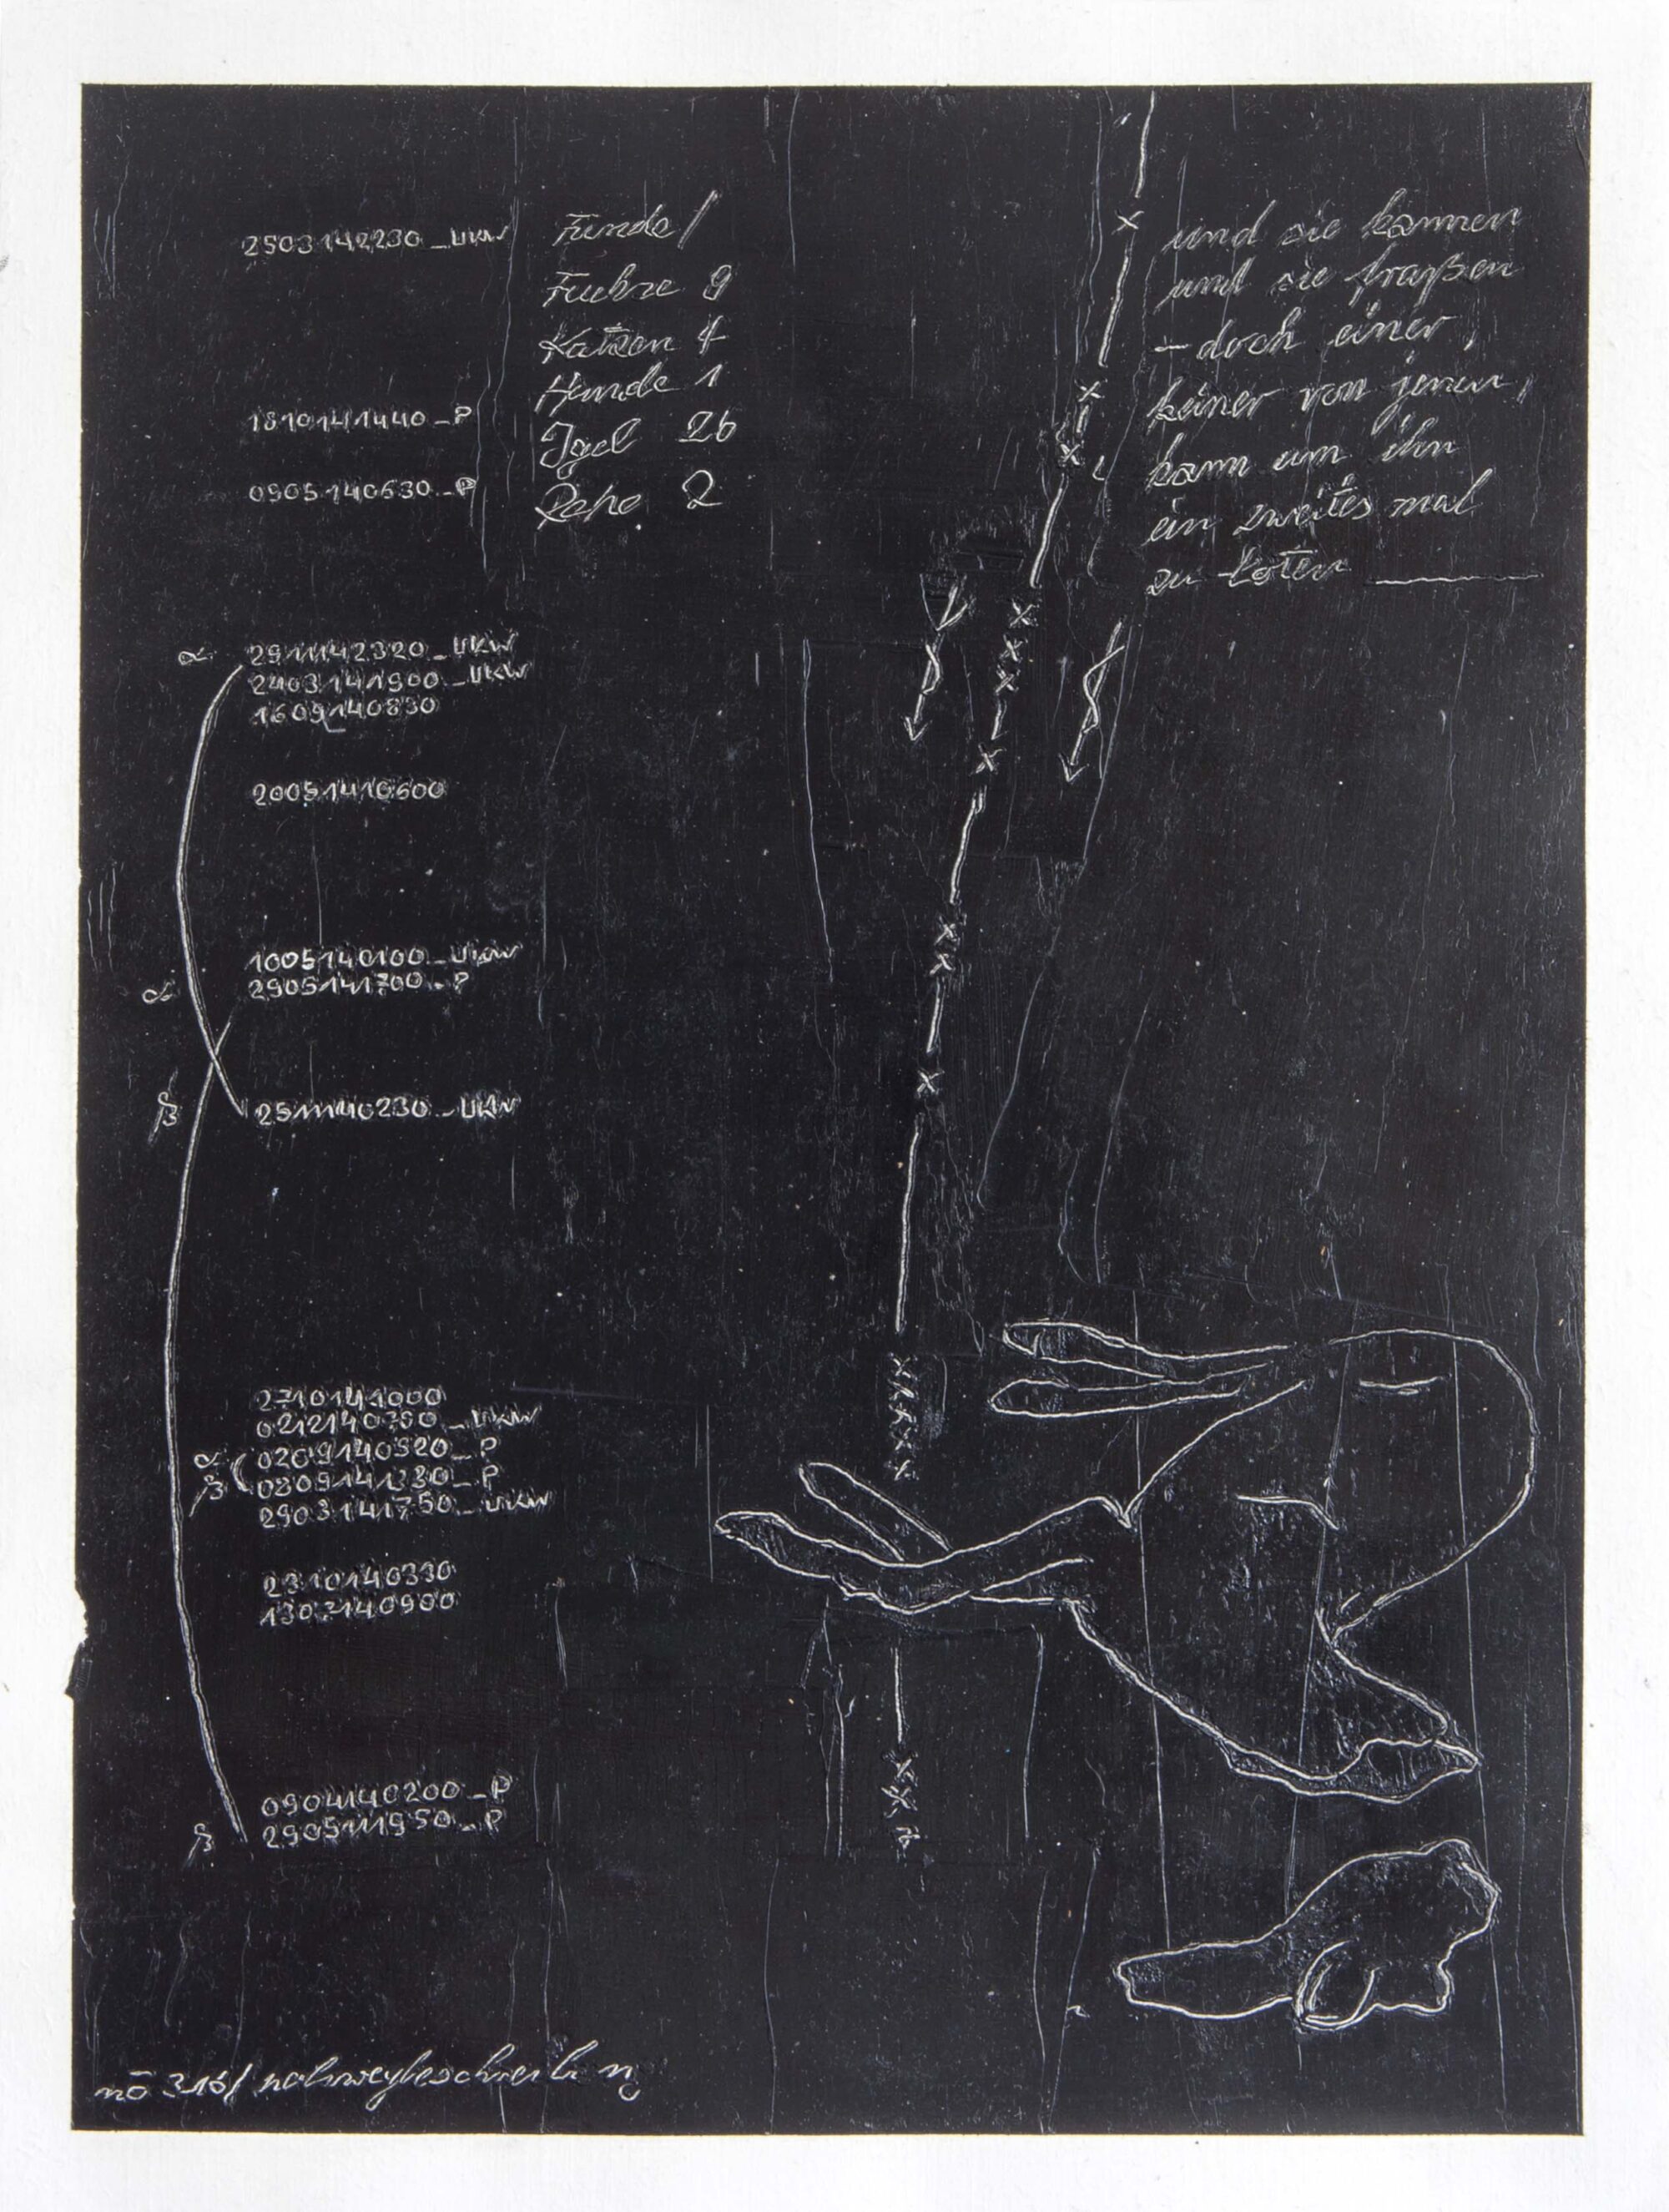 2503142230_UKW
Funde/
Fuchse 9
Katzen 4
Hunde 1
1810141440_P
Igel 26
0905140630_P
Rehe 2
und sie kamen
und sie fraßen
– doch einer,
keiner von jenen,
kam um ihn
ein zweites mal
zu töten
α 2911142320_UKW
2403141900_UKW
1609140830
20051410600
1005140100_UKW
α 2905141700_P
β 2511140230_UKW
2710141000
0212140700_UKW
α 0209140520_P
β 0809141230_P
2903141750_UKW
2310140330
1307140900
0904140200_P
β 2905111950_P
nö 316/